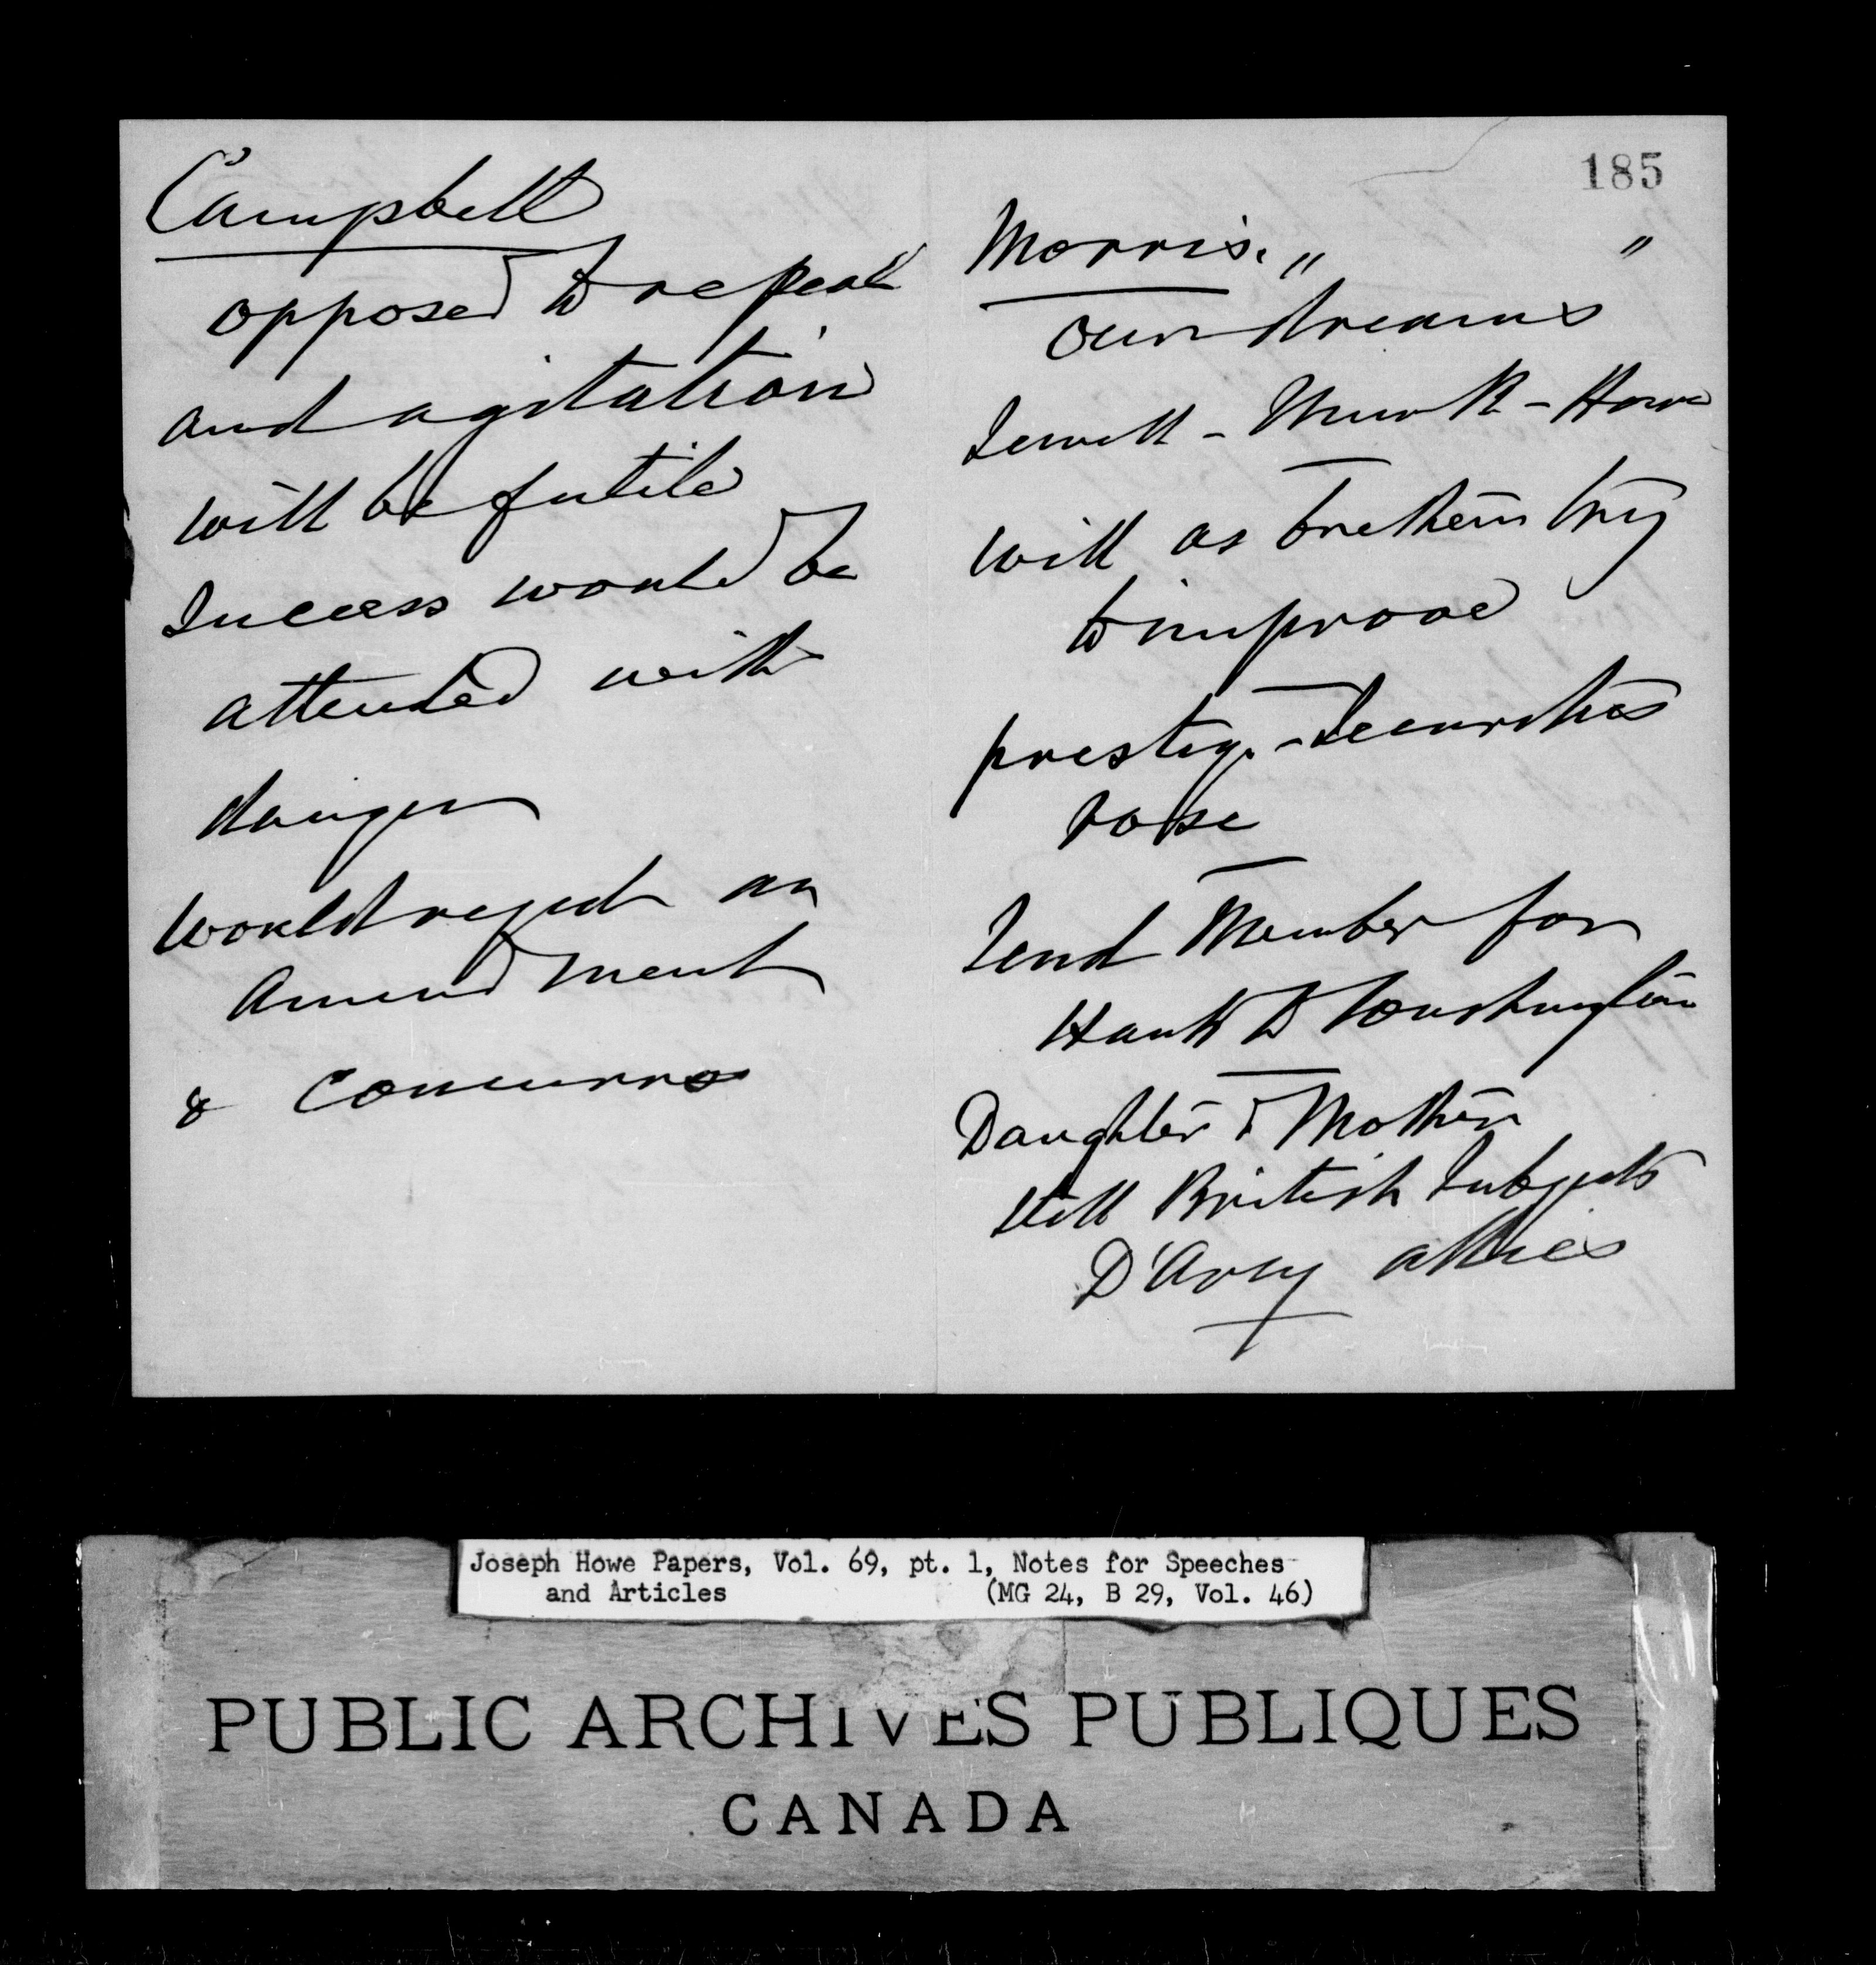 Campbell
opposed to repeal
and agitation
will be futile
Success would be
attended with
danger
would reject an
Amendment
& concurrs
185
Morris. " "
our dreams
Sewell - Munk - Howe
will as brethern try
to improve
prestige - Securities
rose
Send Member for
Hants to Washington
Daughter & Mother
still British Subjects
D'Arcy allies
Joseph Howe Papers, Vol. 69, pt. 1, Notes for Speeches
and Articles (MG 24, B 29, Vol. 46)
PUBLIC ARCHIVES PUBLIQUES
CANADA